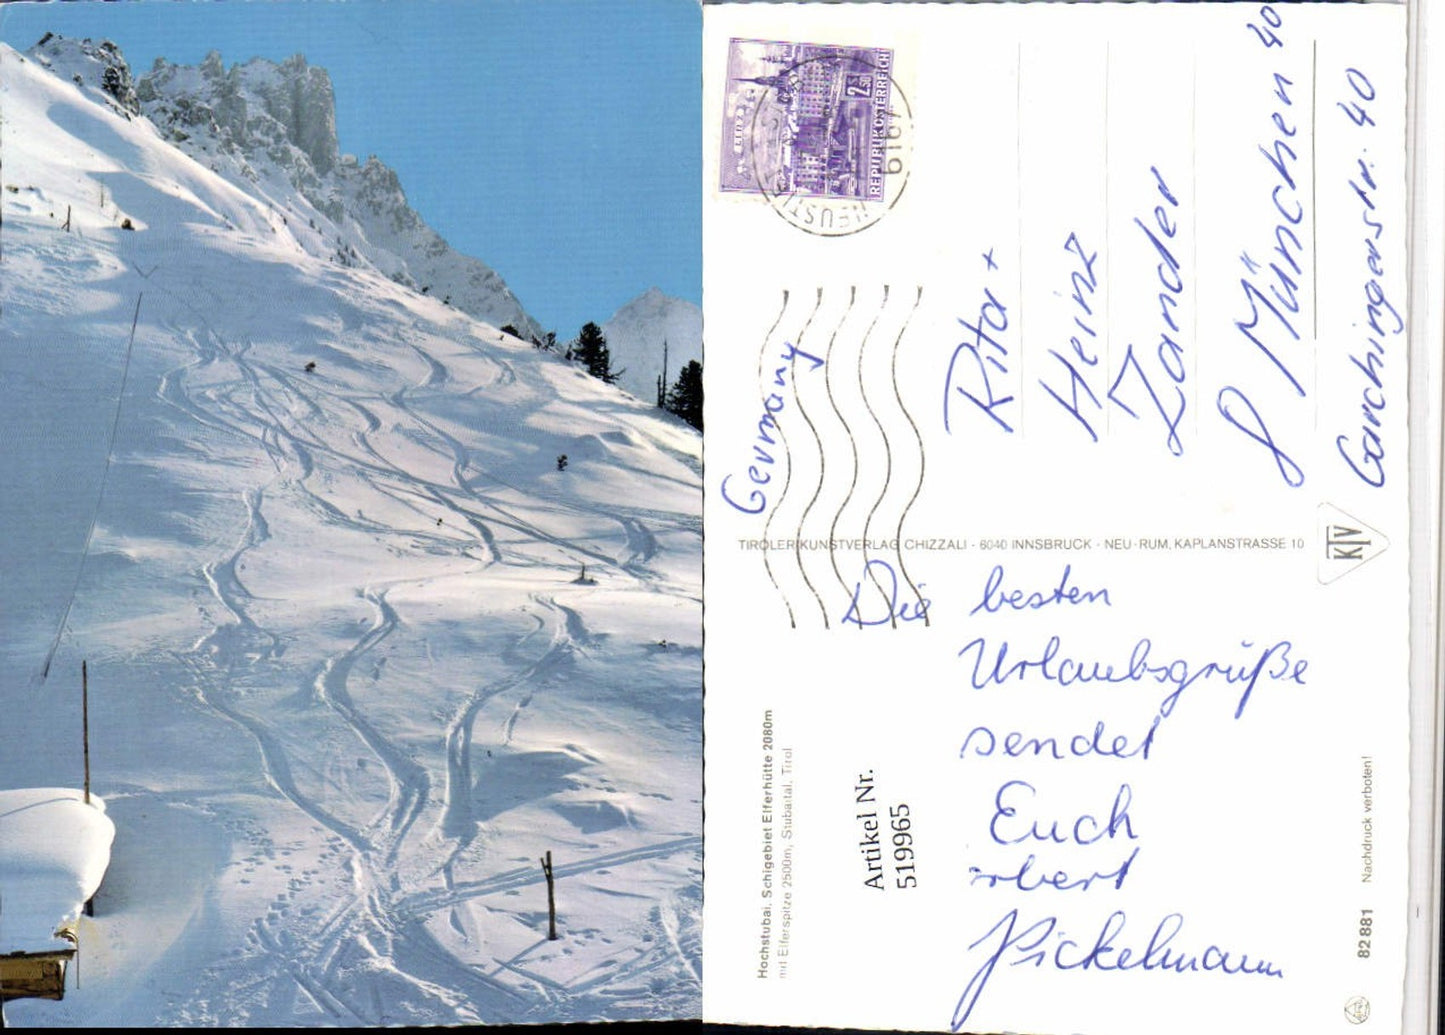 2.50
REPUBLIK ÖSTERREICH
6167
Germany
Rita +
Heinz
Zander
8 München 40
Garchingerstr. 40
TIROLER KUNSTVERLAG CHIZZALI - 6040 INNSBRUCK - NEU-RUM, KAPLANSTRASSE 10
KTV
Die besten
Urlaubsgrüße
sendet
Euch
Pickelmann
Artikel Nr.
519965
Hochstubai, Schigebiet Elferhütte 2080m
mit Elferspitze 2500m, Stubaital, Tirol
82 881
Nachdruck verboten!